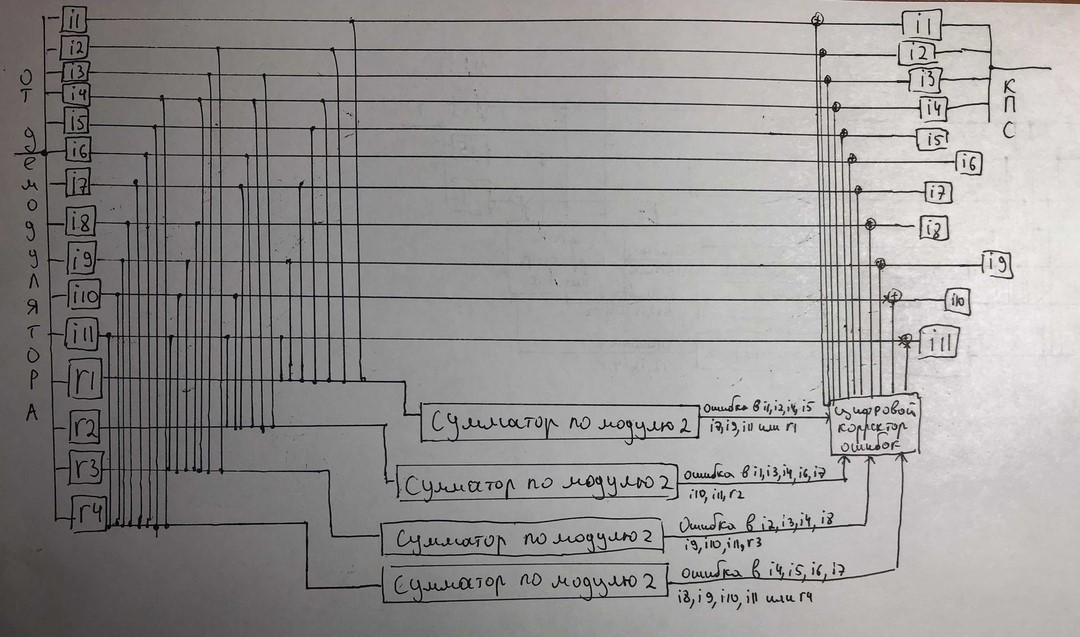 от демодулятора
i1
i2
i3
i4
i5
i6
i7
i8
i9
i10
i11
r1
r2
r3
r4
Сумматор по модулю 2
ошибка в i1, i2, i4, i5
i7, i9, i11 или r1
Сумматор по модулю 2
ошибка в i1, i3, i4, i6, i7
i10, i11, r2
Сумматор по модулю 2
Ошибка в i2, i3, i4, i8
i9, i10, i11, r3
Сумматор по модулю 2
ошибка в i4, i5, i6, i7
i8, i9, i10, i11 или r4
цифровой
корректор
ошибок
i1
i2
i3
i4
i5
i6
i7
i8
i9
i10
i11
КПС